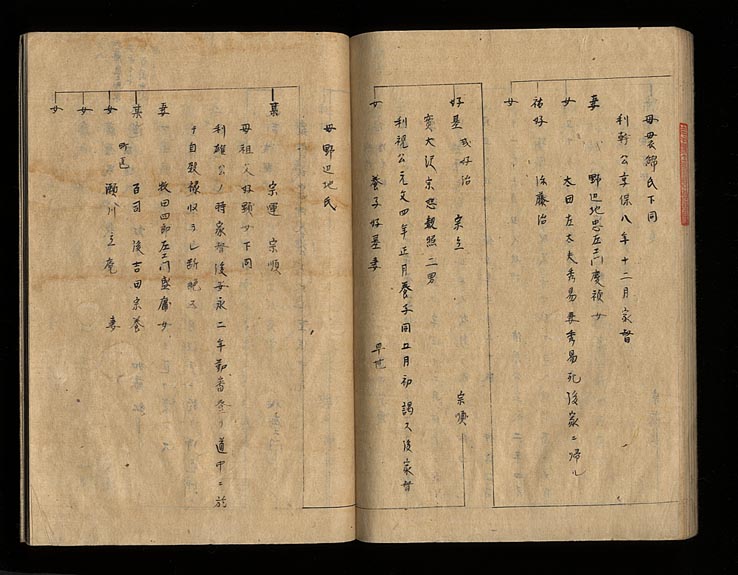 母 毌衆錦氏下同
利幹公享保八年十二月家督
妻 野辺地忠左エ門慶禎女
女 太田左太夫秀易妻秀易死後家ニ帰ル
祐好 治 藤治
女
好基 武好治 宗立 宗庚
実大沢京 照二男
利視公元文四年正月養子同五月初謁ス後家督
女 養子好基妻 早世
母 野辺地氏
某 宗運 宗順
母祖父好頴女下同
利雄公ノ時家督後安永二年勤番登リ道中ニ於
テ自殺 収ラレ断絶ス
妻 牧田四郎左エ門 女
某 百司 後吉田宗養
女 町医 瀬川立庵 妻
女
女